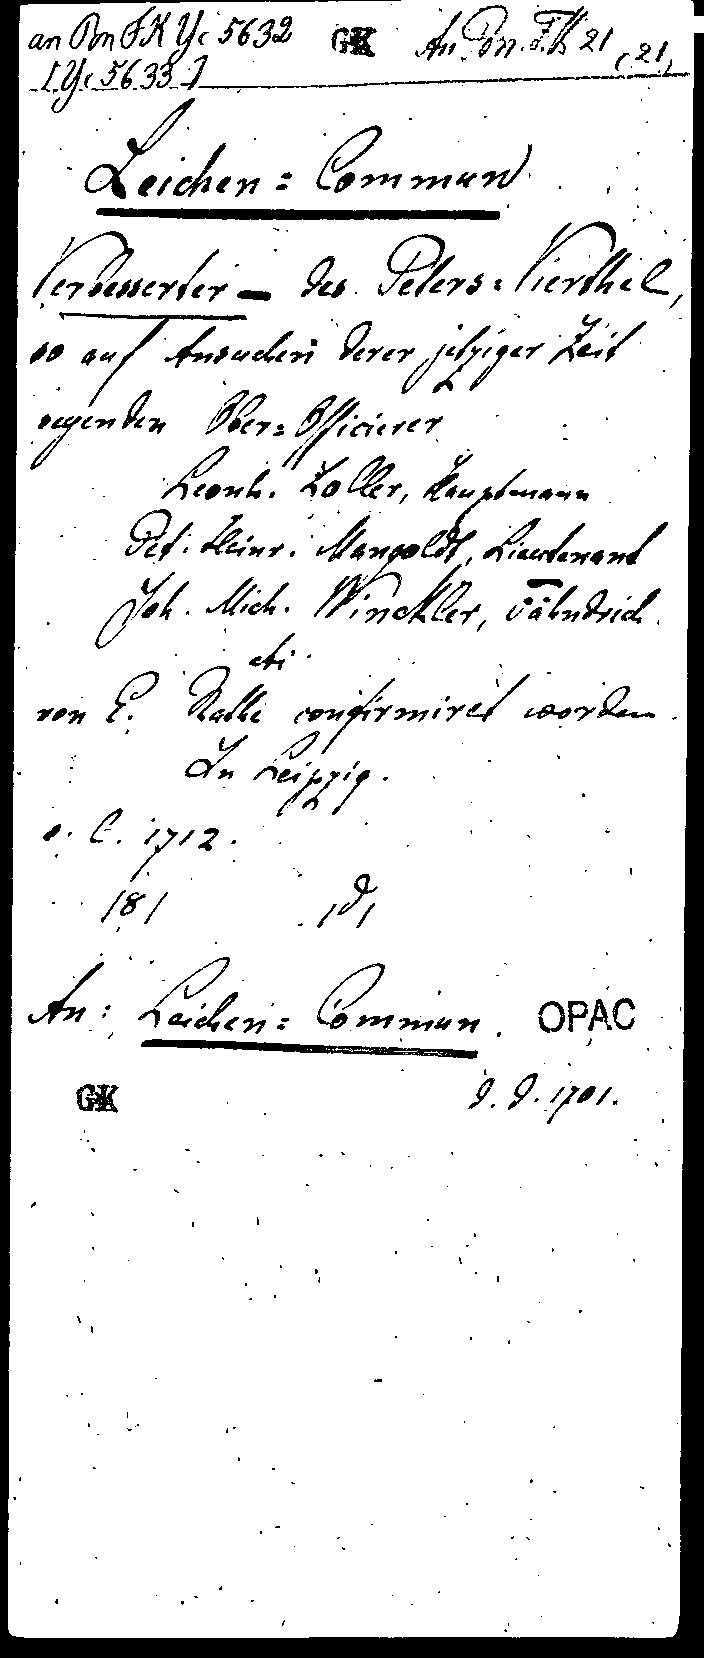 an Pon FK Yc 5632 GK An Pon. FK 21 (21)
[Yc 5633]
Leichen=Commun
Verbesserter — des Peters=Vierthel,
so auf Ansuchen derer jetziger Zeit
Ober=Officierer
Leonh. Zoller, Hauptmann
Pet. Heinr. Mangoldt, Lieutenant
Joh. Mich. Winckler, Fähndrich
von E. Rathe confirmiret worden
In Leipzig.
1712.
181
An: Leichen=Commun. OPAC
GK d. d. 1701.